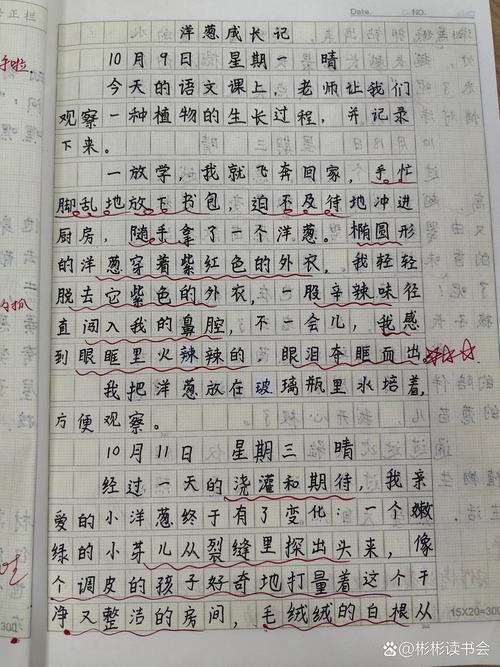 Date. NO.
洋葱成长记
10月9日 星期一 晴
今天的语文课上,老师让我们
观察一种植物的生长过程,并记录
下来。
一放学,我就飞奔回家,手忙
脚乱地放下书包,迫不及待地冲进
厨房,随手拿了一个洋葱。椭圆形
的洋葱穿着紫红色的外衣,我轻轻
脱去它紫色的外衣,一股辛辣味径
直闯入我的鼻腔,不一会儿,我感
到眼眶里火辣辣的,眼泪夺眶而出。
我把洋葱放在玻璃瓶里水培着,
方便观察。
10月11日 星期三 晴
经过一天的浇灌和期待,我亲
爱的小洋葱终于有了变化,一个嫩
绿的小芽儿从裂缝里探出头来,像
个调皮的孩子好奇地打量着这个干
净又整洁的房间,毛绒绒的白根从
15X20=300
@彬彬读书会